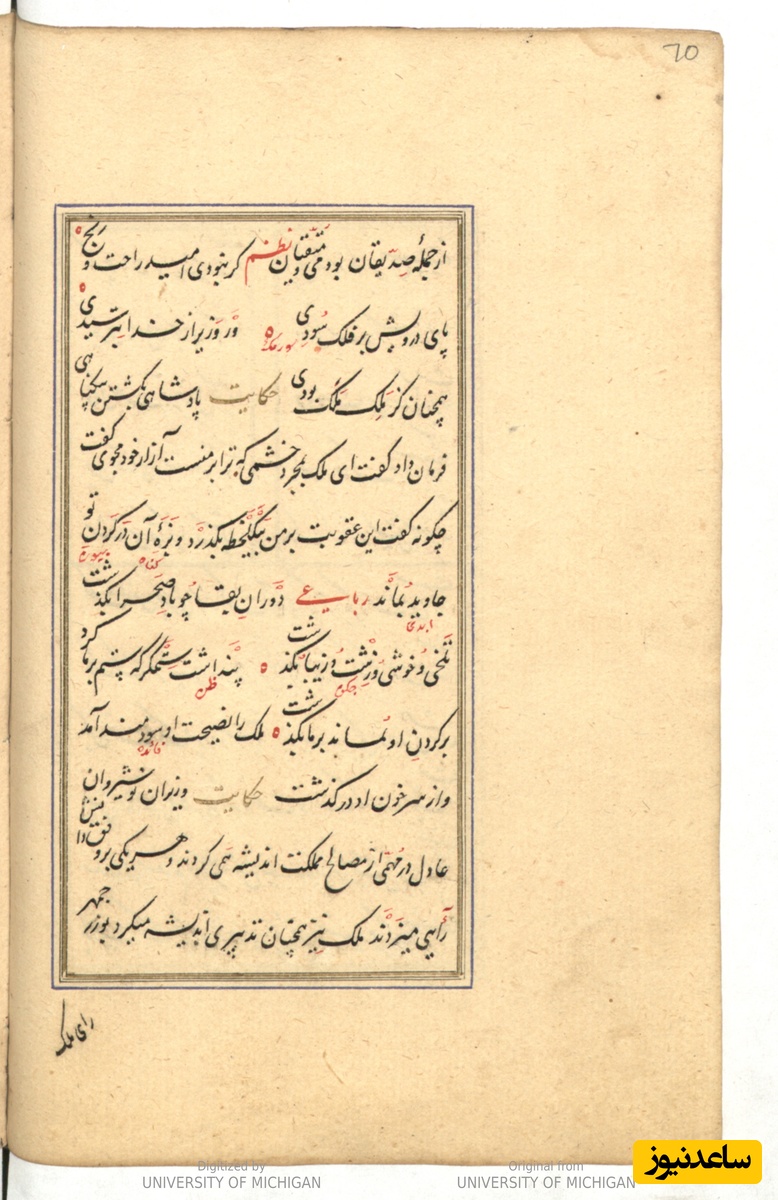 70
از جملهٔ صدّیقان بودمی و متّقیان نظم گر نبودی امید راحت و رنج
پای درویش بر فلک سودی ور وزیر از خدا بترسیدی
همچنان کز مَلِک مَلَک بودی حکایت پادشاهی بکشتن بیگناهی
فرمان داد گفت ای ملک بمجرد خشمی که ترا بر منست آزار خود مجوی گفت
چگونه گفت این عقوبت بر من بیک لحظه بگذرد و بزهٔ آن در گردن تو
گناه
جاوید بماند رباعی دوران بقا چو باد صحرا بگذشت
ابدی
تلخی و خوشی و زشت و زیبا بگذشت پنداشت ستمگر که ستم بر ما کرد
ظن
بر گردن او بماند بر ما بگذشت ملک را نصیحت او سودمند آمد
فائده
و از سر خون او در گذشت حکایت وزیران نوشیروان
عادل در مهمّی از مصالح مملکت اندیشه همی کردند و هر یکی بر وفق دانش
رأیی میزدند ملک نیز همچنان تدبیری اندیشه میکرد بوزرجمهر
رای ملک
Digitized by
UNIVERSITY OF MICHIGAN
Original from
UNIVERSITY OF MICHIGAN
ساعدنیوز